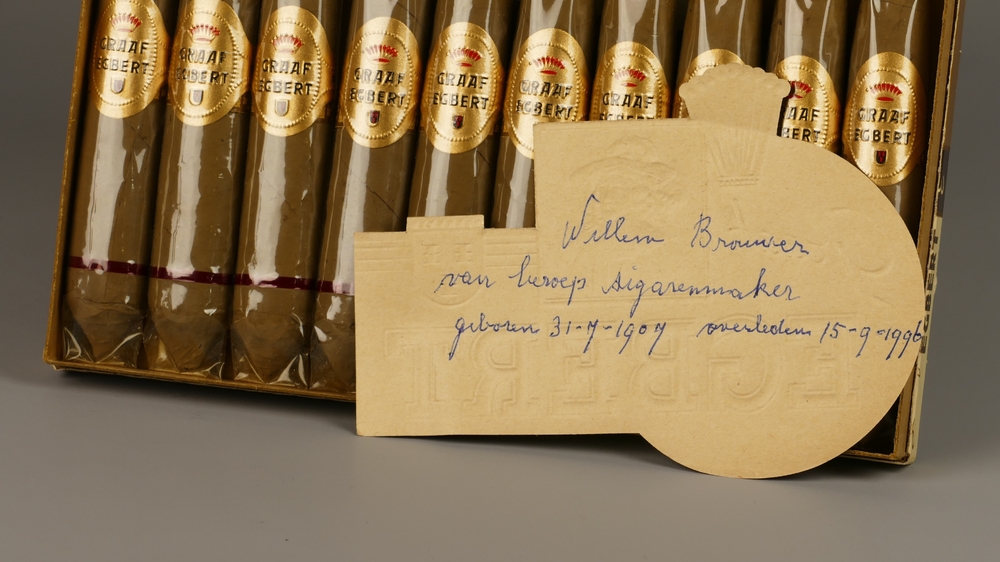 GRAAF EGBERT
GRAAF EGBERT
GRAAF EGBERT
GRAAF EGBERT
GRAAF EGBERT
GRAAF EGBERT
GRAAF
GRAAF EGBERT
EGBERT
Willem Brouwer
van beroep sigarenmaker
geboren 31-7-1907 overleden 15-9-1996
EGBERT